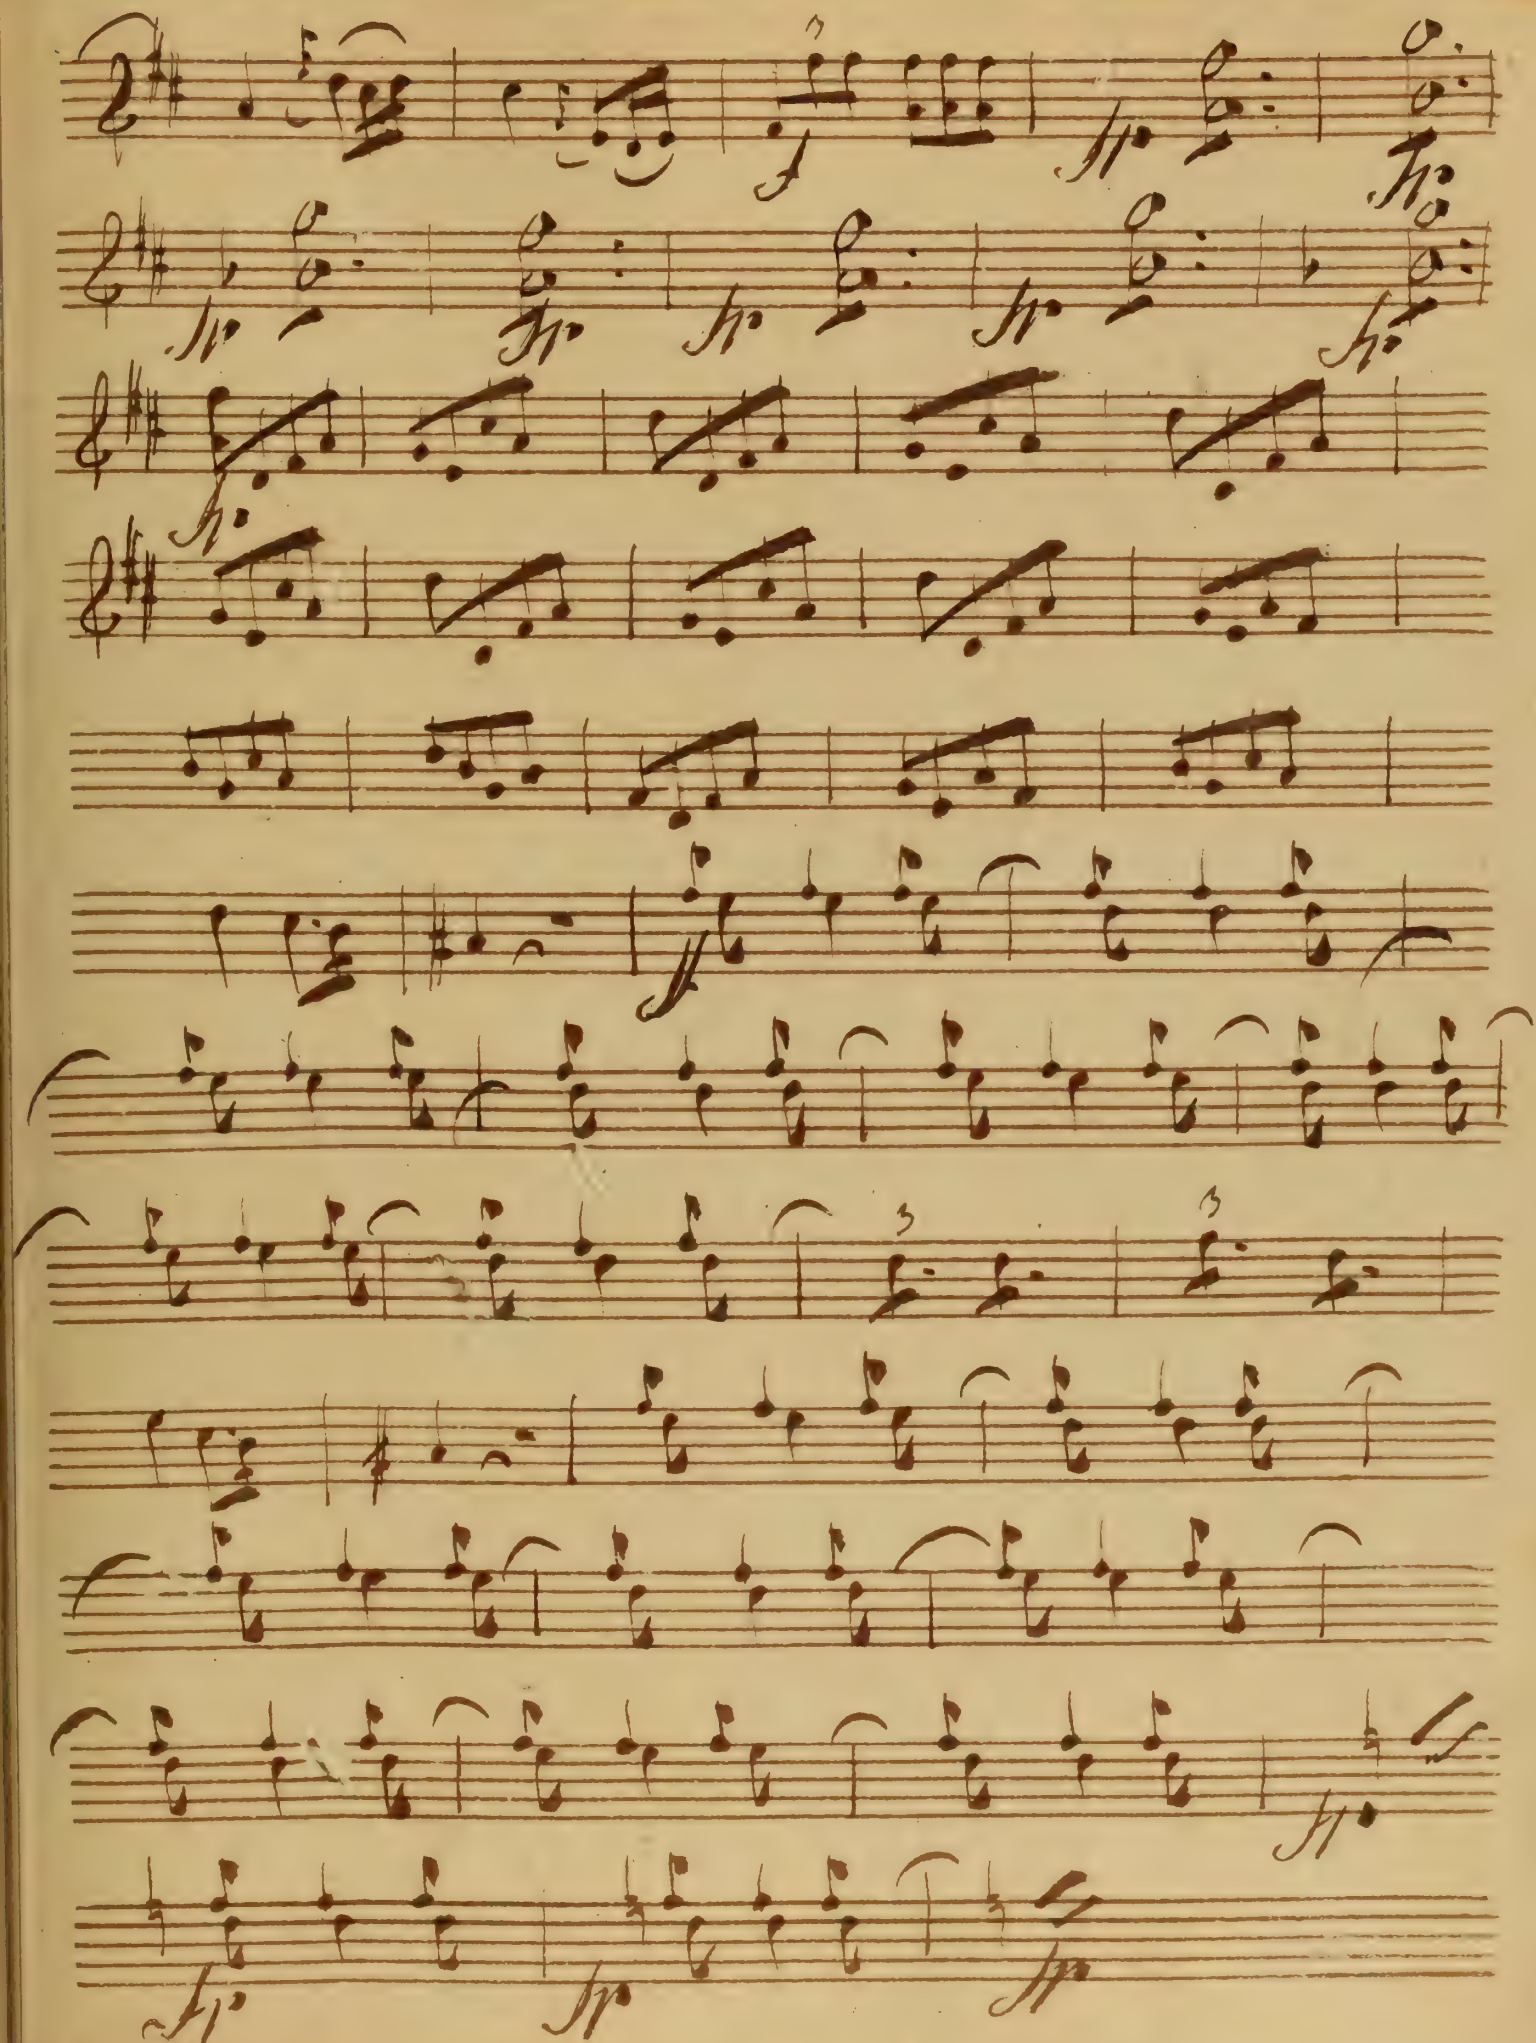 3
f fp fp
fp fp fp fp fp
fp
ff
3 3
fp
fp fp fp